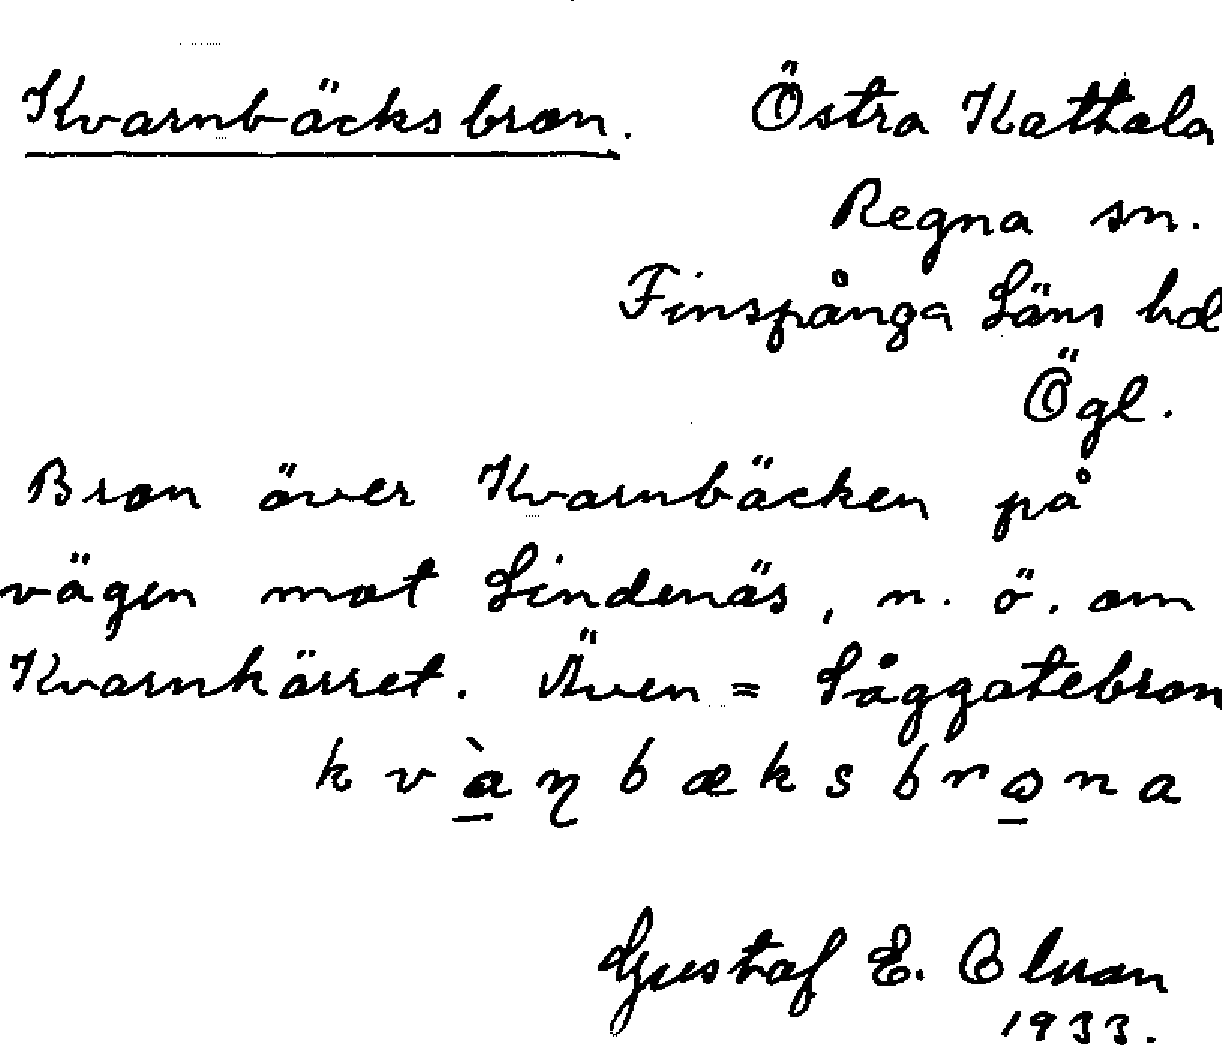 Kvarnbäcksbron. Östra Kattala
Regna sn.
Finspånga Läns hd
Ögl.
Bron över Kvarnbäcken på
vägen mot Lindenäs, n. ö. om
Kvarnkärret. Även = Såggatebron
kvàɳbæksbrona
Gustaf E.
1933.